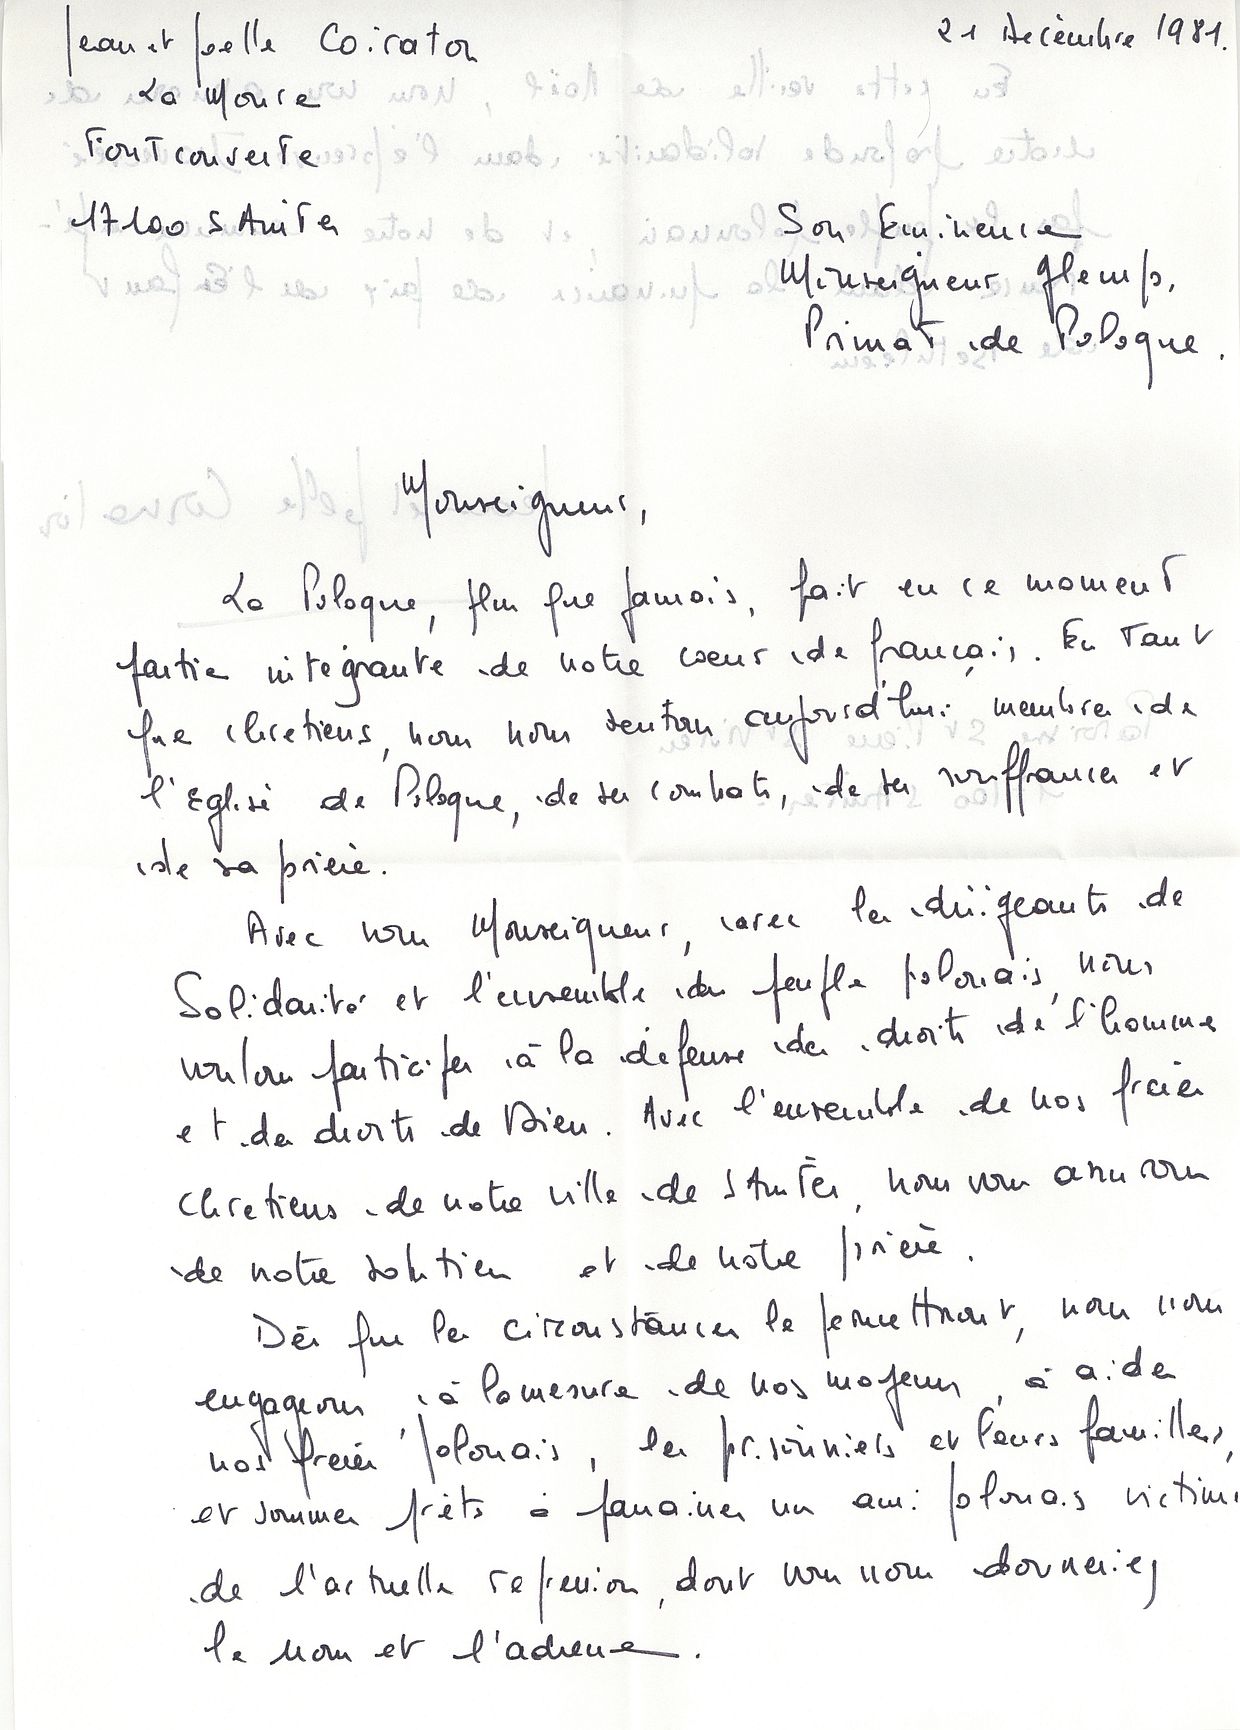 Jean et Joelle Coirator
La Mource
Fontcouverte
17100 SAinTes
21 Décembre 1981.
Son Eminence
Monseigneur Glemp,
Primat de Pologne.
Monseigneur,
La Pologne, plus que jamais, fait en ce moment
partie intégrante de notre coeur de français. En Tant
que chrétiens, nous nous sentons aujourd'hui membres de
l'Eglise de Pologne, de ses combats, de ses souffrances et
de sa prière.
Avec vous Monseigneur, avec les dirigeants de
Solidarité et l'ensemble du peuple polonais, nous
voulons participer à la défense des droits de l'homme
et des droits de Dieu. Avec l'ensemble de nos frères
chrétiens de notre ville de SAinTes, nous vous assurons
de notre soutien et de notre prière.
Dès que les circonstances le permettront, nous nous
engageons, à la mesure de nos moyens, à aider
nos frères polonais, les prisonniers et leurs familles,
et sommes prêts à parrainer un ami polonais victime
de l'actuelle répression, dont vous nous donneriez
le nom et l'adresse.